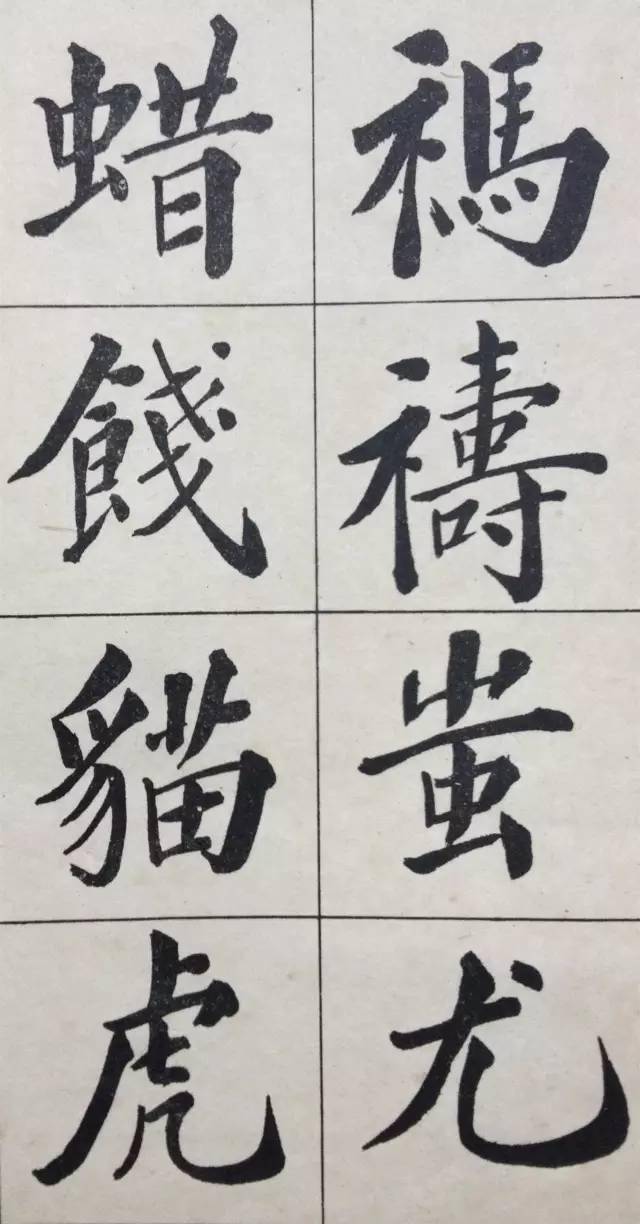 禡禱蚩尤
蜡餞貓虎